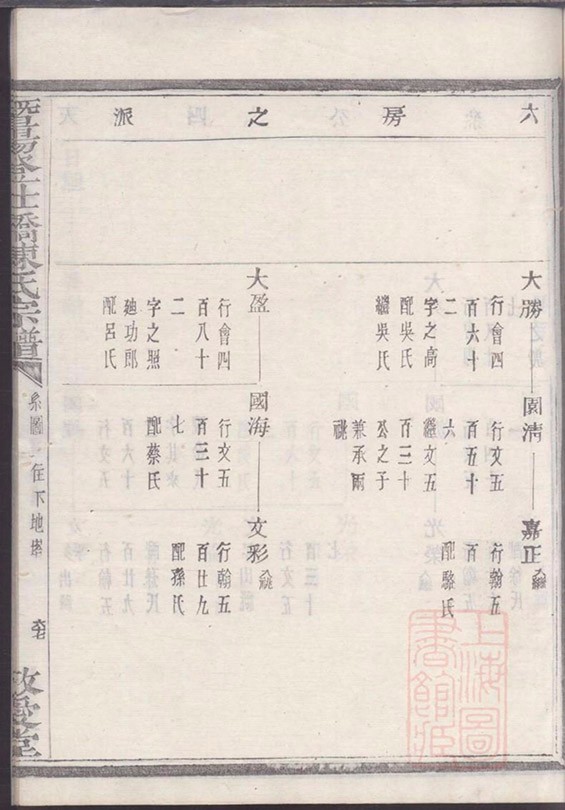 六房之派
大勝
行會四
百六十
二
字之高
配吳氏
繼吳氏
國清
行文五
百五十
六
繼文五
百三十
公之子
兼承兩
祧
嘉正
行翰五
配駱氏
大盈
行會四
百八十
二
字之照
廸功郎
配呂氏
國海
行文五
百三十
七
配蔡氏
文彩
行翰五
百廿九
配孫氏
橋陳氏宗譜
系圖
在下地
上海圖書館藏